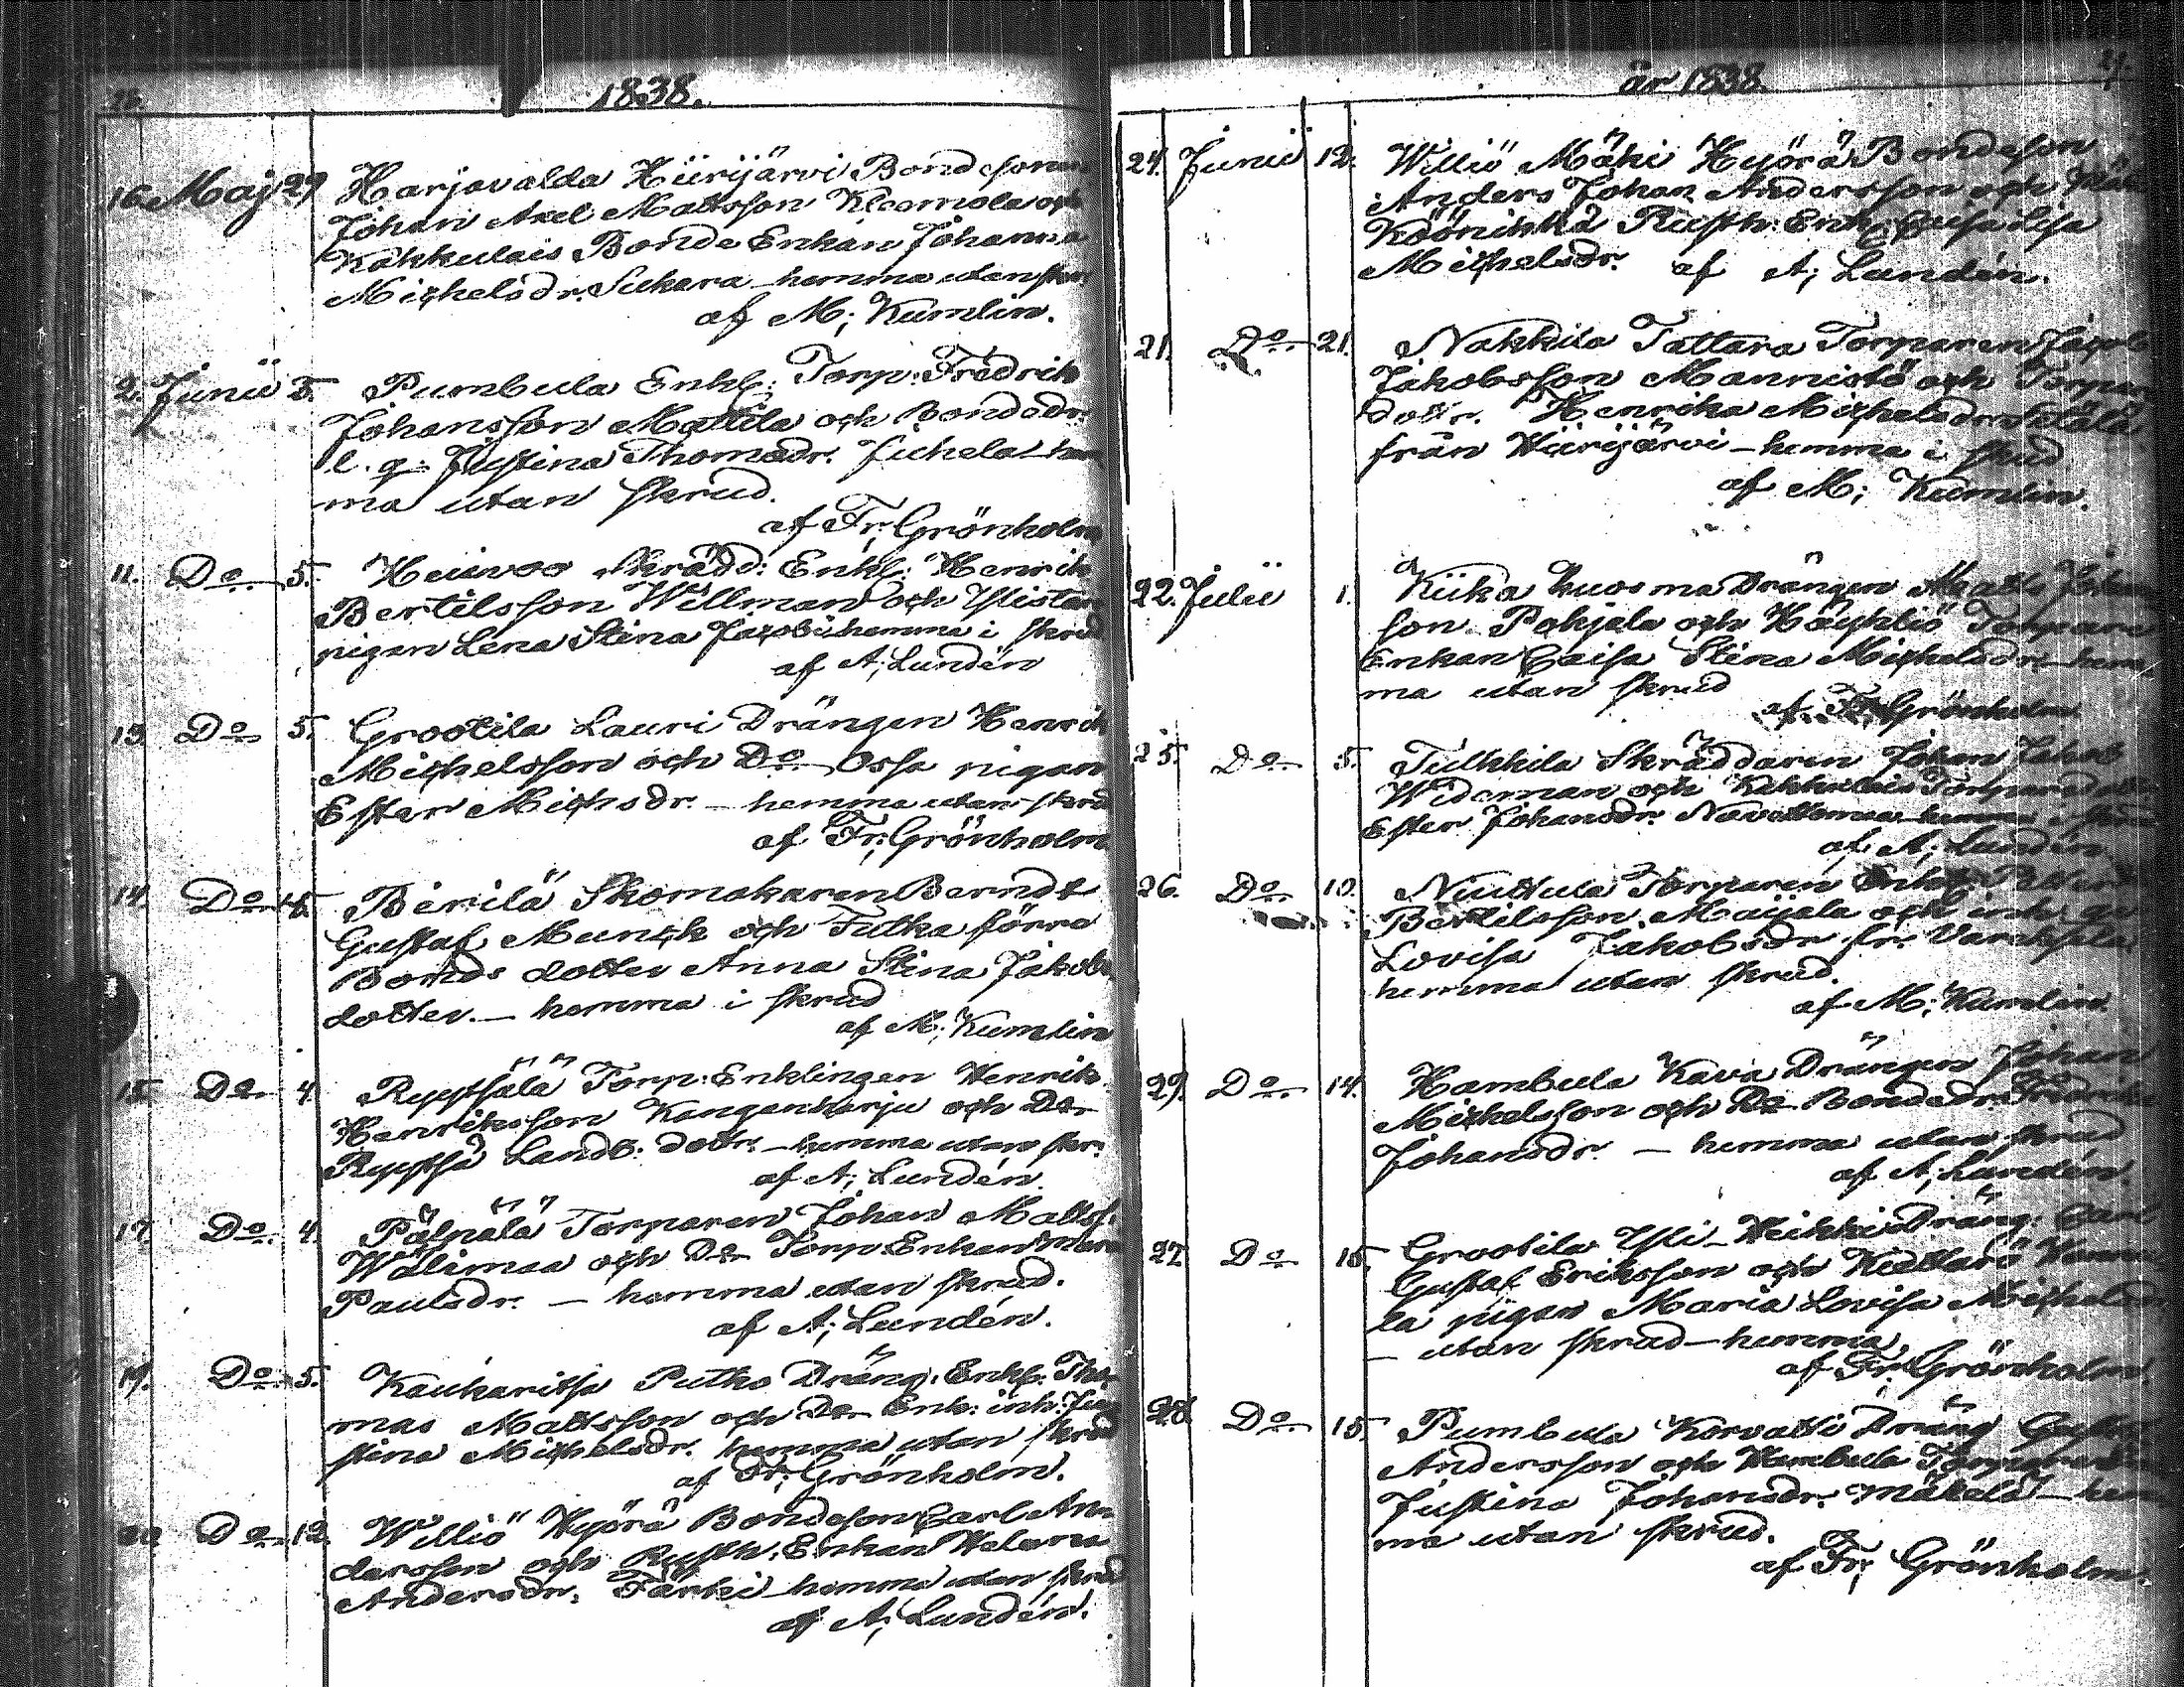 28. 1838.
16. Maj 29 Harjavalda Hiirijärvi Bondesonen
Johan Axel Mattsson Kleemola och
Kakkulais Bonde Enkan Johanna
Michelsdr. Sukara hemma utan skr.
af M; Kumlin.
2. Junii 5. Pumbula Enkl: Torp: Fredrik
Johansson Mattila och Bondedr.
l. q. Justina Thomadr. Juhela hem
ma utan skrud.
af Fr; Grönholm
11. Do 5. Heinvoo Skrädd: Enkl: Henrik
Bertilsson Willman och Ylistar
pigan Lena Stina Jacobi hemma i skrud
af A; Lundén
13. Do 5. Grootila Lauri Drängen Henrik
Michelsson och Do Ossa pigan
Ester Michsdr. – hemma utan skrud
af Fr; Grönholm
14. Do Birilä Skomakaren Berndt
Gustaf Munck och Tulka förra
Bonde dotter Anna Stina Jakobs
dotter. – hemma i skrud
af M; Kumlin
15. Do 4. Ryytsälä Torp: Enklingen Henrik
Henriksson Kangenharju och Do
Ryytsä Landb: dotr. – hemma utan skr:
af A; Lundén.
17. Do 4. Pälpälä Torparen Johan Matts:
Wälimaa och Do Torp Enkan Maria
Paulsdr. – hemma utan skrud.
af A; Lundén.
19. Do 5. Kaukaritsa Putko Dräng: Enkl: Tho
mas Mattsson och Do Enk: inh: Ju
stina Michelsdr. hemma utan skrud
af Fr; Grönholm.
20 Do 12. Williö Hyörä Bondeson Carl An
dersson och Rusth: Enkan Walera
Andersdr. Tärki hemma utan skrud
af A; Lundén.
år 1838. 29.
24. Junii 12. Williö Mäki Hyörä Bondeson
Anders Johan Andersson och
Köönikkä Rusth: Enk: Caisa Lisa
Michelsdr. af A; Lundén.
21. Do 21. Nakkila Tattara Torparen Jacob
Jakobsson Mannistö och Torpar
dotr. Henrika Michelsdr.
från Hiirijärvi – hemma i skrud
af M; Kumlin.
22. Julii 1. Kiika Kuosma Drängen Matts Johan
son Pohjala och Häyhliö Torpare
Enkan Caisa Stina Michelsdr. hem
ma utan skrud
af Fr; Grönholm
25. Do 5. Tulkkila Skräddaren Johan Jakob
Wideman och Kakkulais Torparedotr
Ester Johansdr. Navattomaa hemma i skrud
af A; Lundén
26. Do 10. Niuttula Torparen Enkl: Petter
Bertilsson Maijala och inh:
Lovisa Jakobsdr. fr.
hemma utan skrud.
af M; Kumlin.
29. Do 14. Hambula Kava Drängen Johan
Michelsson och Do Bondedr: Fredrika
Johansdr. – hemma utan skrud
af A; Lundén.
27. Do 15. Grootila Yli Heikki Dräng: Carl
Gustaf Eriksson och
la pigan Maria Lovisa Michelsdr.
– utan skrud – hemma
af Fr: Grönholm.
28. Do 15. Pumbula Korvatti Dräng Gustaf
Andersson och Hambula
Justina Johansdr. Mäkelä – hem
ma utan skrud.
af Fr; Grönholm.